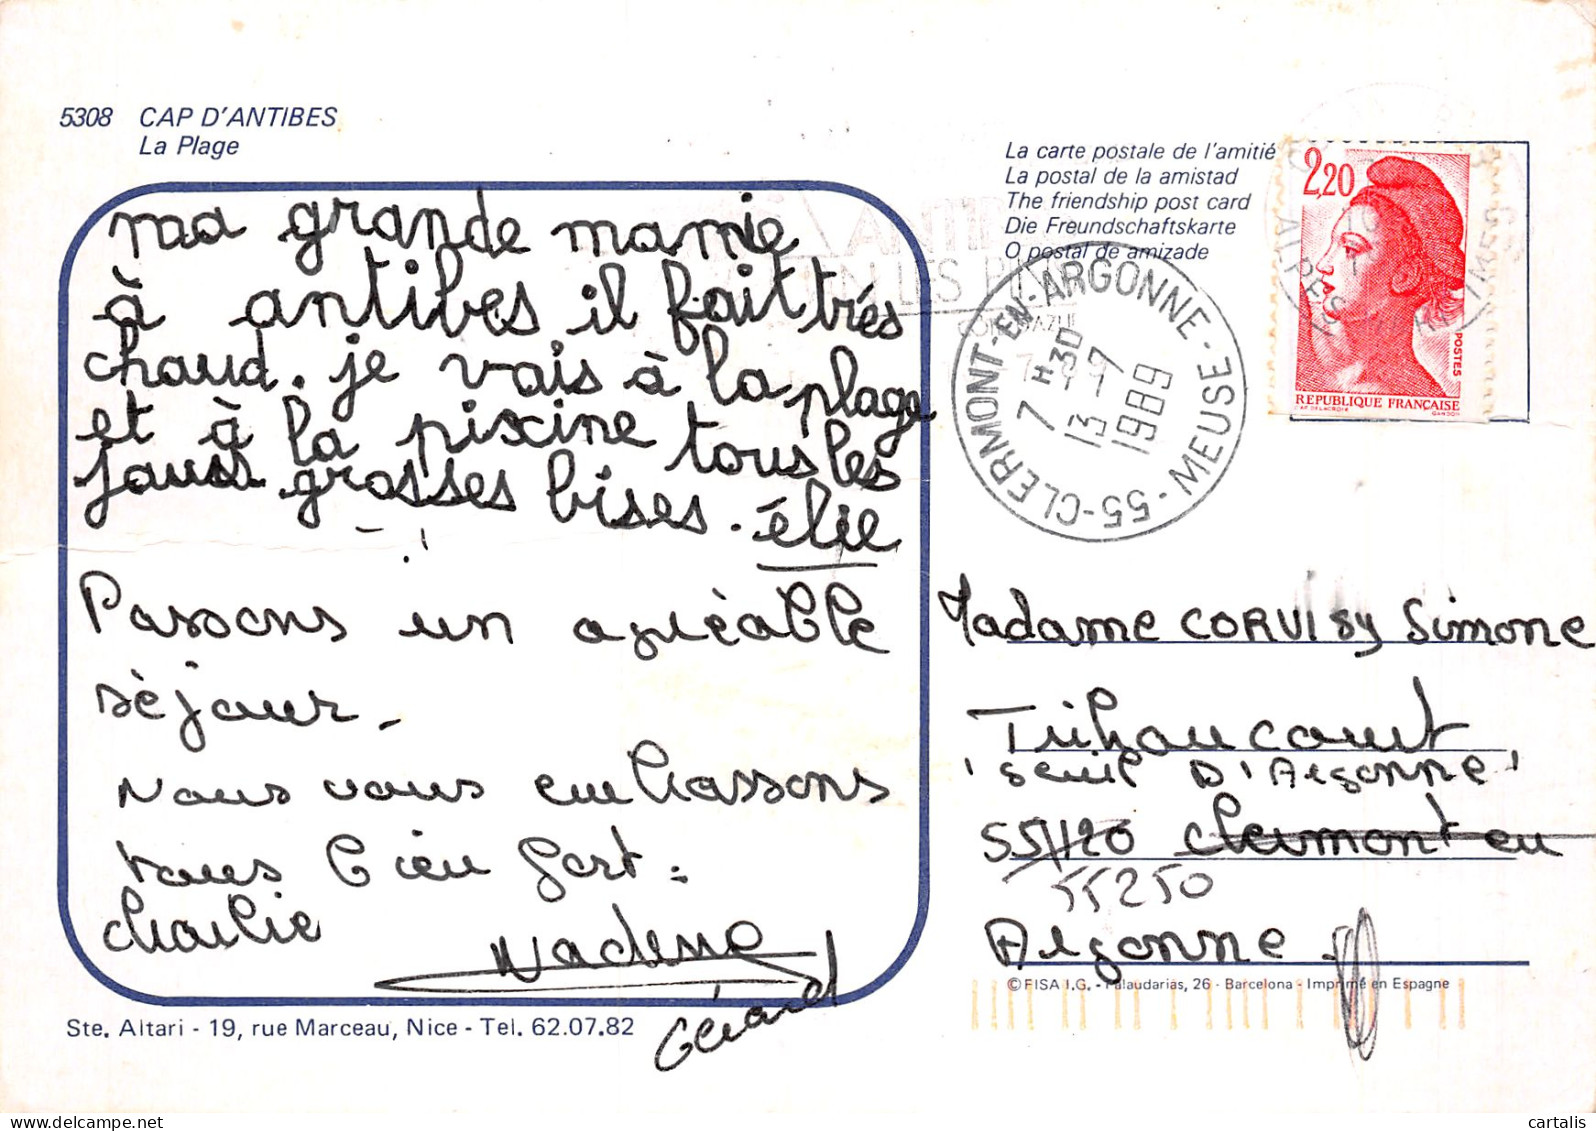 5308 CAP D'ANTIBES
La Plage
ma grande mamie
à antibes il fait très
chaud. je vais à la plage
et à la piscine tous les
jours grosses bises. élie
Passons un agréable
séjour.
Nous vous embrassons
tous bien fort.
Charlie
Nadine
Gérard
Ste. Altari - 19, rue Marceau, Nice - Tel. 62.07.82
La carte postale de l'amitié
La postal de la amistad
The friendship post card
Die Freundschaftskarte
O postal de amizade
2,20
POSTES
REPUBLIQUE FRANÇAISE
ALPES
55-CLERMONT-EN-ARGONNE-MEUSE
7 H 30
13-7
1989
Madame CORVISY Simone
Triaucourt
'Seuil D'Argonne'
55120 Clermont en
55250
Argonne.
© FISA I.G. - Palaudarias, 26 - Barcelona - Imprimé en Espagne
cartalis